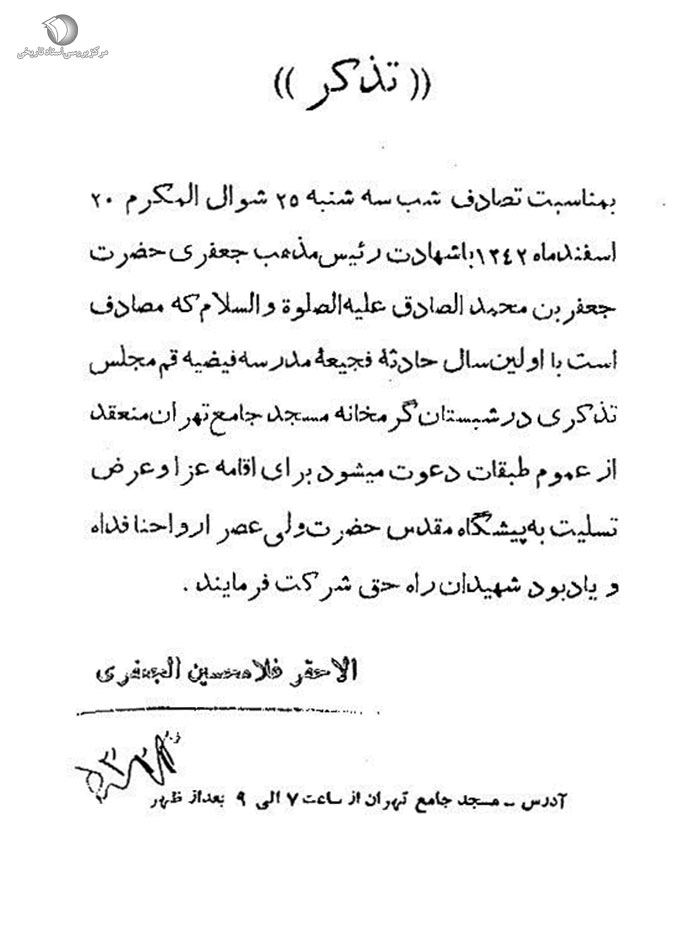 مرکز بررسی اسناد تاریخی
(( تذکر ))
بمناسبت تصادف شب سه شنبه ۲۵ شوال المکرم ۲۰
اسفندماه ۱۳۴۲ باشهادت رئیس مذهب جعفری حضرت
جعفر بن محمد الصادق علیه الصلوة والسلام که مصادف
است با اولین سال حادثهٔ فجیعهٔ مدرسه فیضیه قم مجلس
تذکری در شبستان گرمخانه مسجد جامع تهران منعقد
از عموم طبقات دعوت میشود برای اقامه عزا و عرض
تسلیت به پیشگاه مقدس حضرت ولی عصر ارواحنا فداه
و یادبود شهیدان راه حق شرکت فرمایند .
الاحقر غلامحسین الجعفری
آدرس - مسجد جامع تهران از ساعت ۷ الی ۹ بعداز ظهر